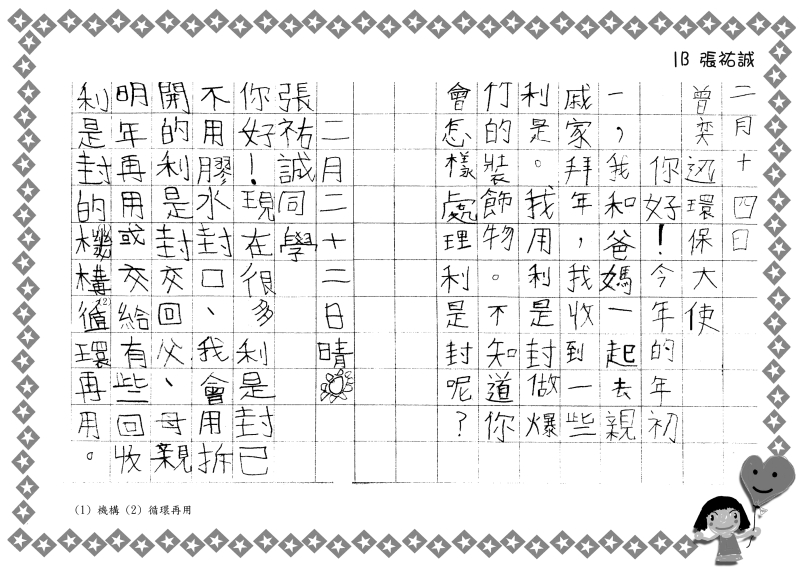 1B 張祐誠
二月十四日
曾奕迅環保大使
你好！今年的年初
一，我和爸媽一起去親
戚家拜年，我收到一些
利是。我用利是封做爆
竹的裝飾物。不知道你
會怎樣處理利是封呢？
二月二十二日晴
張祐誠同學
你好！現在很多利是封已
不用膠水封口、我會用拆
開的利是封交回父、母親
明年再用或交給有些回收
利是封的機構循環再用。
(2)
(1) 機構 (2) 循環再用